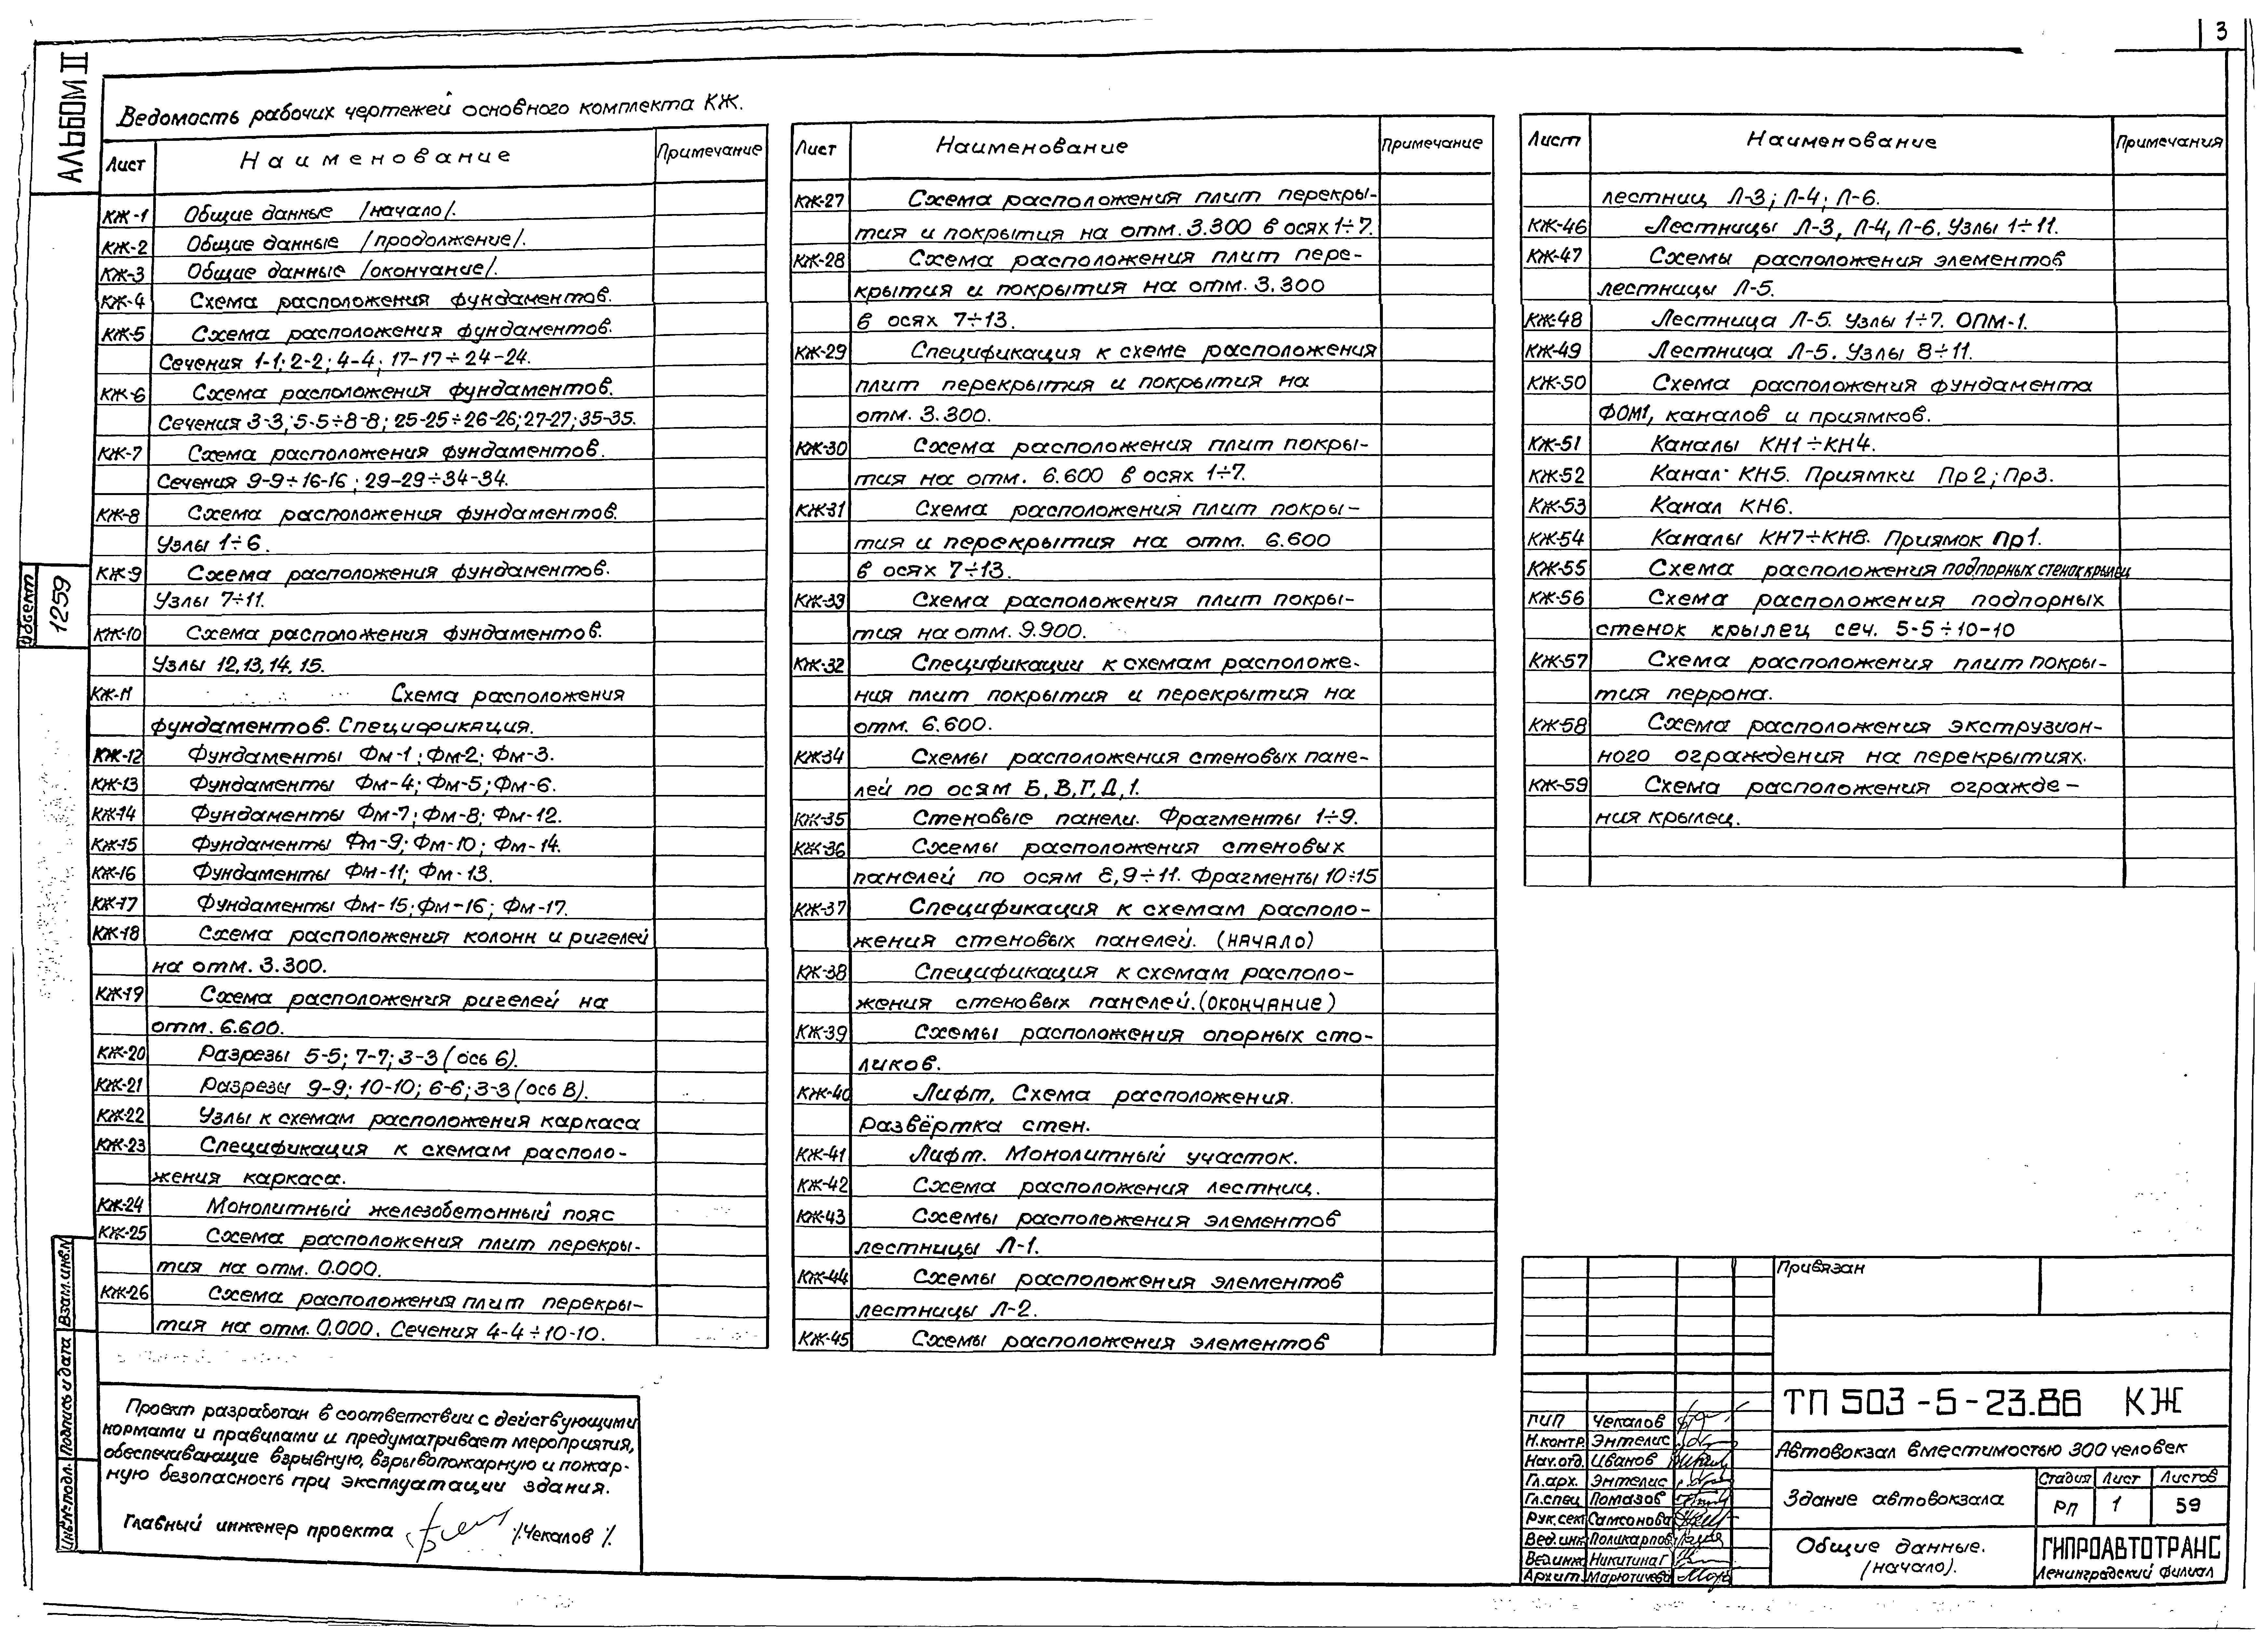 3
Альбом III
Ведомость рабочих чертежей основного комплекта КЖ.
Лист Наименование Примечание
КЖ-1 Общие данные /начало/.
КЖ-2 Общие данные /продолжение/.
КЖ-3 Общие данные /окончание/.
КЖ-4 Схема расположения фундаментов.
КЖ-5 Схема расположения фундаментов.
Сечения 1-1; 2-2; 4-4; 17-17÷24-24.
КЖ-6 Схема расположения фундаментов.
Сечения 3-3; 5-5÷8-8; 25-25÷26-26; 27-27; 35-35.
КЖ-7 Схема расположения фундаментов.
Сечения 9-9÷16-16; 29-29÷34-34.
КЖ-8 Схема расположения фундаментов.
Узлы 1÷6.
КЖ-9 Схема расположения фундаментов.
Узлы 7÷11.
КЖ-10 Схема расположения фундаментов.
Узлы 12, 13, 14, 15.
КЖ-11 Схема расположения
фундаментов. Спецификация.
КЖ-12 Фундаменты Фм-1; Фм-2; Фм-3.
КЖ-13 Фундаменты Фм-4; Фм-5; Фм-6.
КЖ-14 Фундаменты Фм-7; Фм-8; Фм-12.
КЖ-15 Фундаменты Фм-9; Фм-10; Фм-14.
КЖ-16 Фундаменты Фм-11; Фм-13.
КЖ-17 Фундаменты Фм-15; Фм-16; Фм-17.
КЖ-18 Схема расположения колонн и ригелей
на отм. 3.300.
КЖ-19 Схема расположения ригелей на
отм. 6.600.
КЖ-20 Разрезы 5-5; 7-7; 3-3 (ось 6).
КЖ-21 Разрезы 9-9; 10-10; 6-6; 3-3 (ось В).
КЖ-22 Узлы к схемам расположения каркаса
КЖ-23 Спецификация к схемам располо-
жения каркаса.
КЖ-24 Монолитный железобетонный пояс
КЖ-25 Схема расположения плит перекры-
тия на отм. 0.000.
КЖ-26 Схема расположения плит перекры-
тия на отм. 0.000. Сечения 4-4÷10-10.
Лист Наименование Примечание
КЖ-27 Схема расположения плит перекры-
тия и покрытия на отм. 3.300 в осях 1÷7.
КЖ-28 Схема расположения плит пере-
крытия и покрытия на отм. 3.300
в осях 7÷13.
КЖ-29 Спецификация к схеме расположения
плит перекрытия и покрытия на
отм. 3.300.
КЖ-30 Схема расположения плит покры-
тия на отм. 6.600 в осях 1÷7.
КЖ-31 Схема расположения плит покры-
тия и перекрытия на отм. 6.600
в осях 7÷13.
КЖ-33 Схема расположения плит покры-
тия на отм. 9.900.
КЖ-32 Спецификации к схемам расположе-
ния плит покрытия и перекрытия на
отм. 6.600.
КЖ-34 Схемы расположения стеновых пане-
лей по осям Б, В, Г, Д, 1.
КЖ-35 Стеновые панели. Фрагменты 1÷9.
КЖ-36 Схемы расположения стеновых
панелей по осям Е, 9÷11. Фрагменты 10÷15
КЖ-37 Спецификация к схемам располо-
жения стеновых панелей. (начало)
КЖ-38 Спецификация к схемам располо-
жения стеновых панелей. (окончание)
КЖ-39 Схемы расположения опорных сто-
ликов.
КЖ-40 Лифт. Схема расположения.
Развёртка стен.
КЖ-41 Лифт. Монолитный участок.
КЖ-42 Схема расположения лестниц.
КЖ-43 Схемы расположения элементов
лестницы Л-1.
КЖ-44 Схемы расположения элементов
лестницы Л-2.
КЖ-45 Схемы расположения элементов
Лист Наименование Примечания
лестниц Л-3; Л-4; Л-6.
КЖ-46 Лестницы Л-3, Л-4, Л-6. Узлы 1÷11.
КЖ-47 Схемы расположения элементов
лестницы Л-5.
КЖ-48 Лестница Л-5. Узлы 1÷7. ОПМ-1.
КЖ-49 Лестница Л-5. Узлы 8÷11.
КЖ-50 Схема расположения фундамента
ФОМ1, каналов и приямков.
КЖ-51 Каналы КН1÷КН4.
КЖ-52 Канал КН5. Приямки Пр2; Пр3.
КЖ-53 Канал КН6.
КЖ-54 Каналы КН7÷КН8. Приямок Пр1.
КЖ-55 Схема расположения подпорных стенок крылец
КЖ-56 Схема расположения подпорных
стенок крылец сеч. 5-5÷10-10
КЖ-57 Схема расположения плит покры-
тия перрона.
КЖ-58 Схема расположения экструзион-
ного ограждения на перекрытиях.
КЖ-59 Схема расположения огражде-
ния крылец.
Объект 1259
Взам. инв. №
Подпись и дата
Инв. № подл.
Проект разработан в соответствии с действующими
нормами и правилами и предусматривает мероприятия,
обеспечивающие взрывную, взрывопожарную и пожар-
ную безопасность при эксплуатации здания.
Главный инженер проекта /Чекалов/.
Привязан
ГИП Чекалов
Н.контр. Энтелис
Нач.отд. Иванов
Гл.арх. Энтелис
Гл.спец. Помазов
Рук.сект Самсонова
Вед.инж Поликарпов
Вед.инж Никитина Г
Архит.
ТП 503-5-23.86 КЖ
Автовокзал вместимостью 300 человек
Здание автовокзала
Стадия Лист Листов
РП 1 59
Общие данные.
(начало).
ГИПРОАВТОТРАНС
Ленинградский филиал